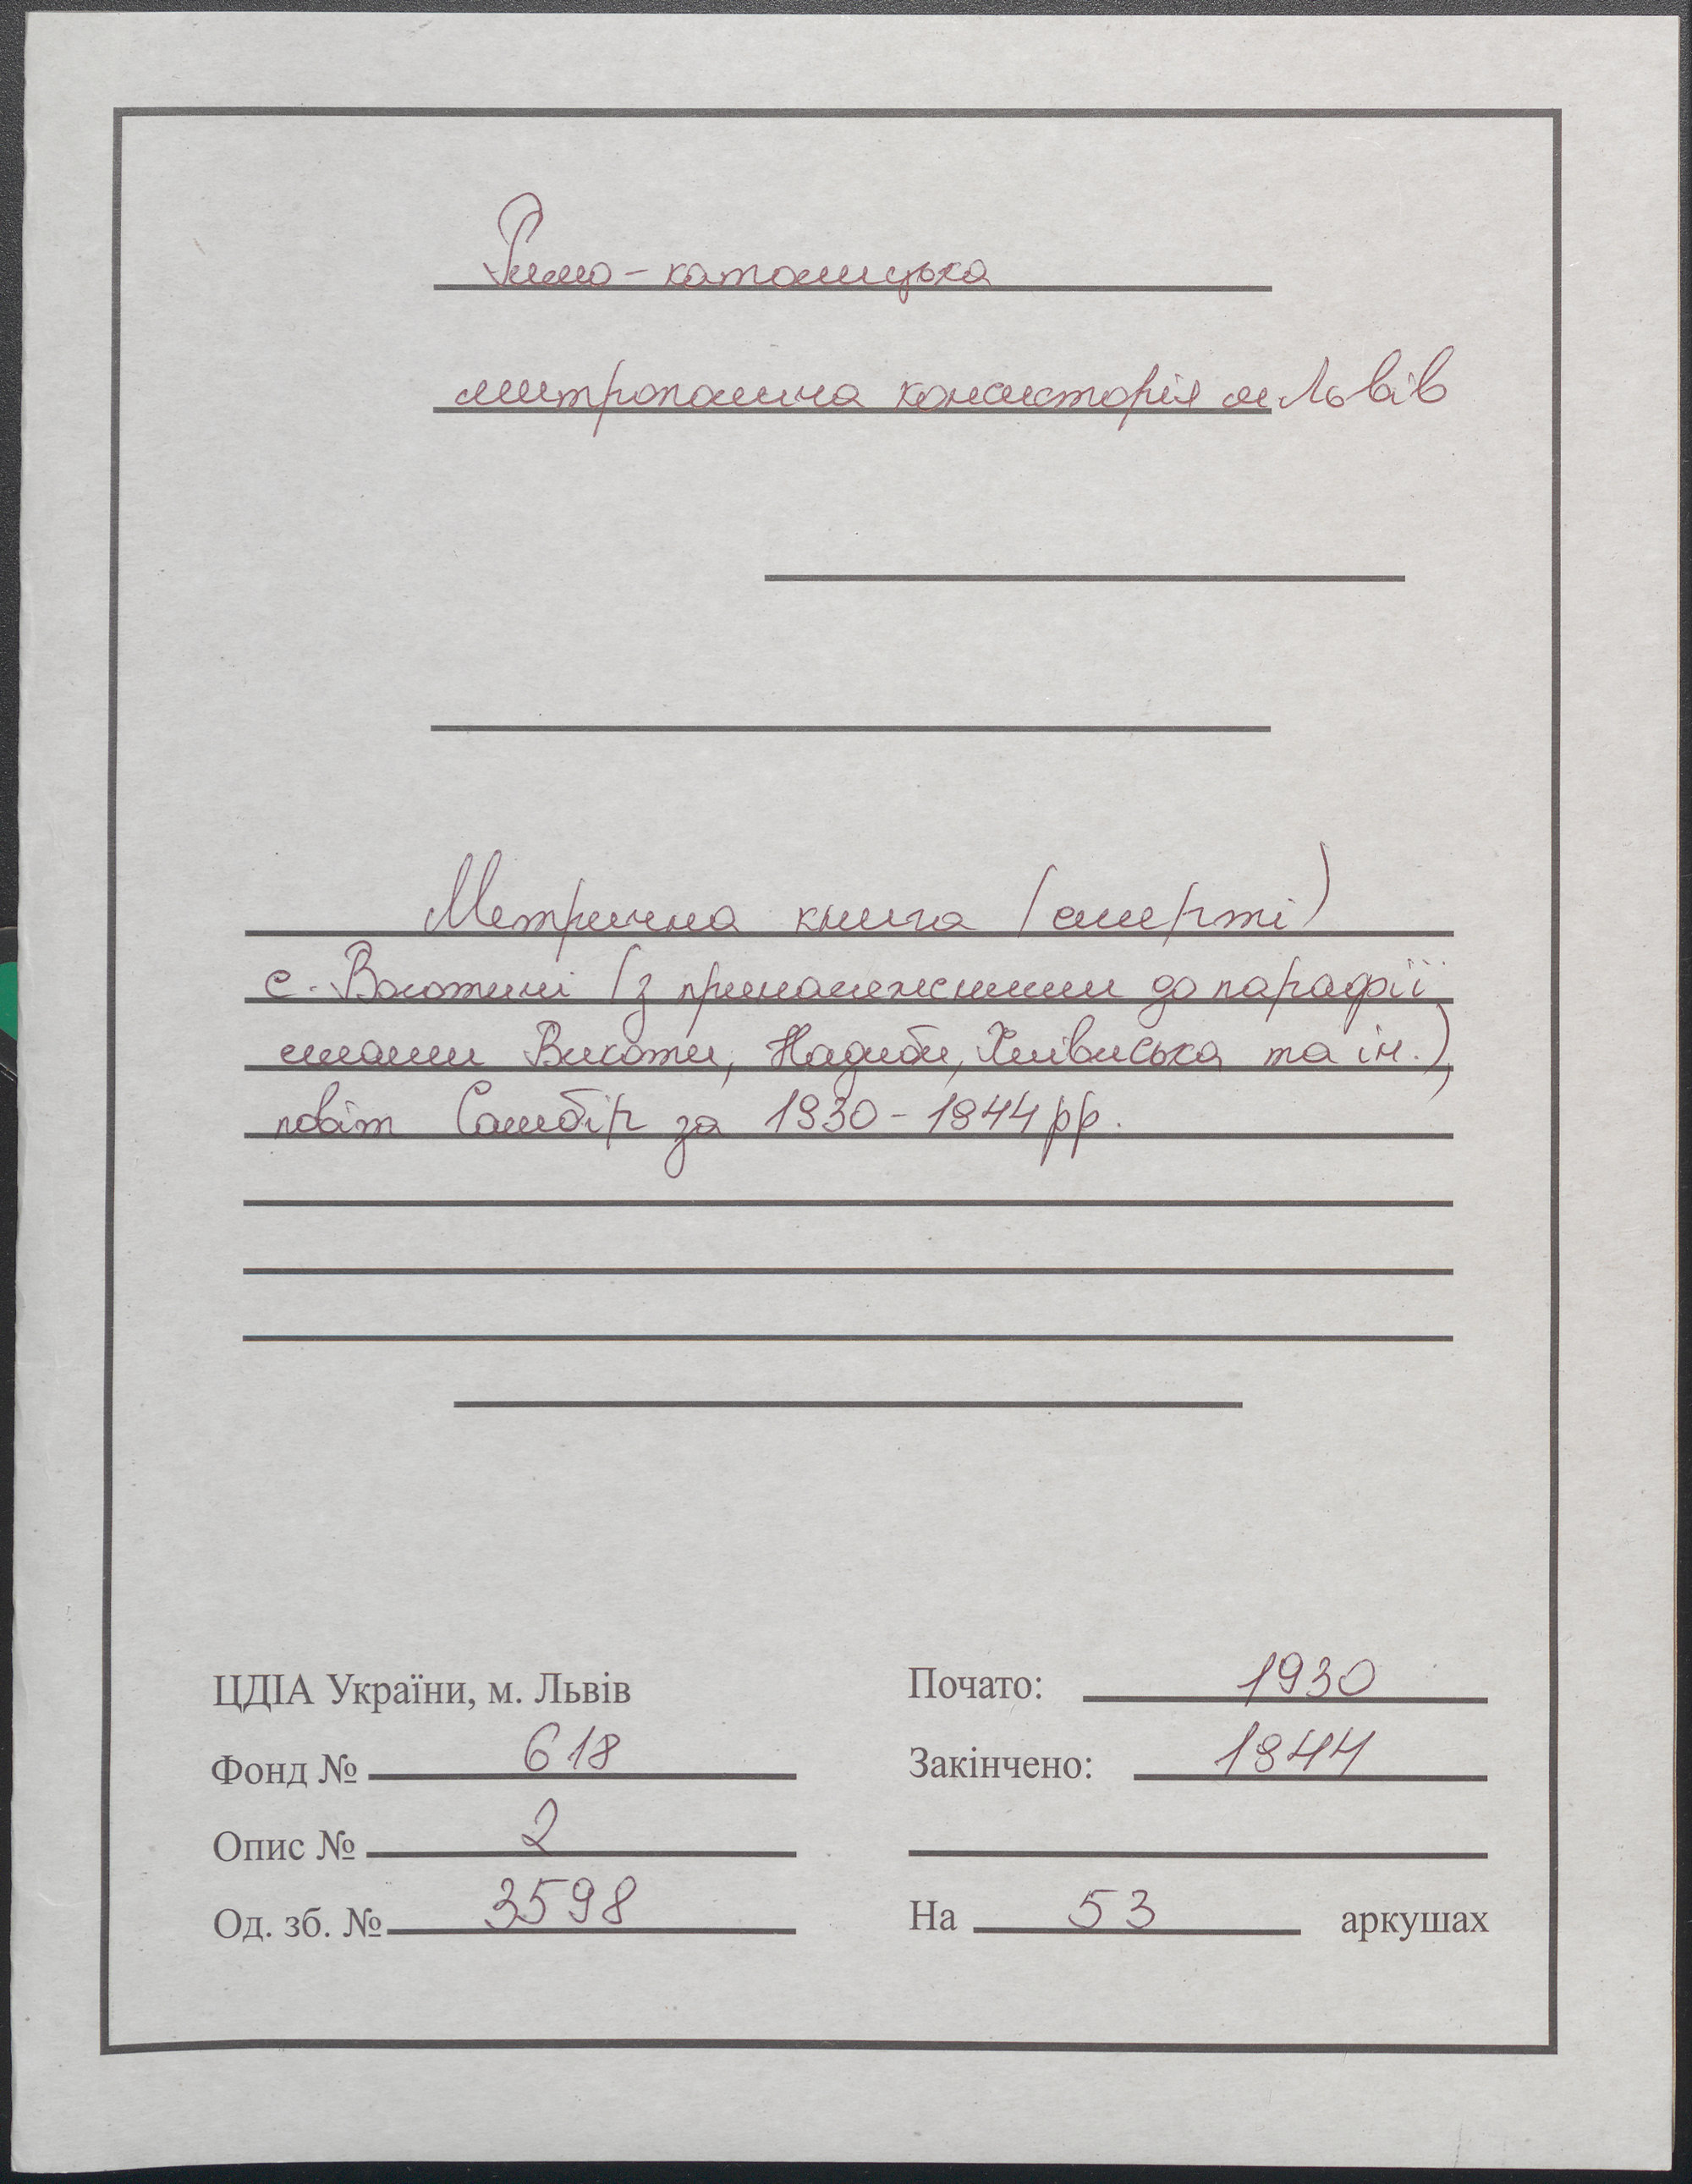 Римо-католицька
митрополича консисторія м Львів
Метрична книга (смерті)
с. Волотині (з приналежними до парафії
селами Викоти, Надиби, Хлівиська та ін.),
повіт Самбір за 1930-1944 рр.
ЦДІА України, м. Львів
Фонд № 618
Опис № 2
Од. зб. № 3598
Почато: 1930
Закінчено: 1944
На 53 аркушах